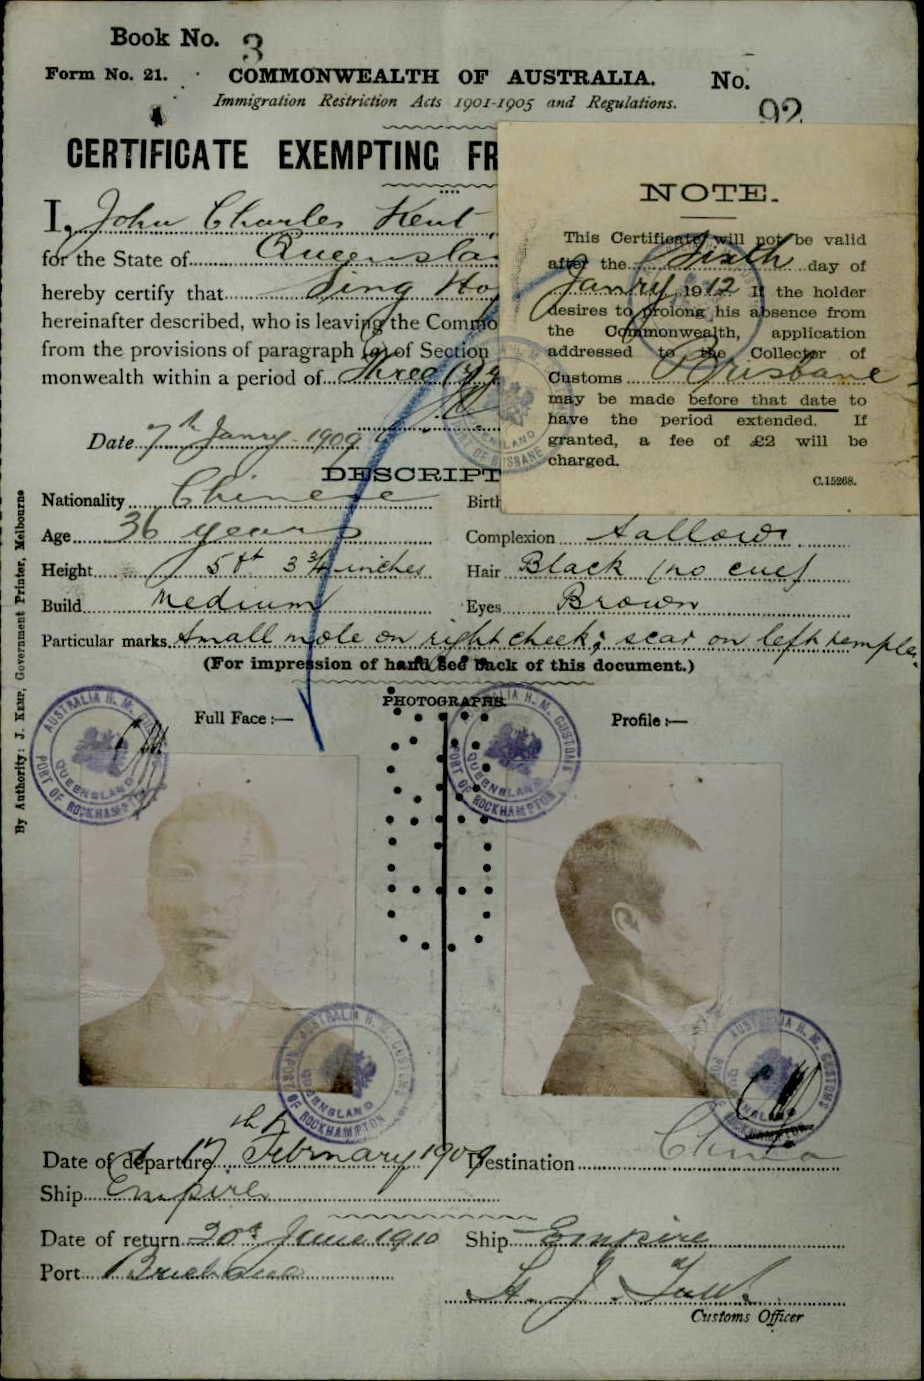 Book No. 3
Form No. 21. COMMONWEALTH OF AUSTRALIA. No. 92
Immigration Restriction Acts 1901-1905 and Regulations.
CERTIFICATE EXEMPTING FR
I, John Charles Kent
for the State of Queensla
hereby certify that Sing Ho
hereinafter described, who is leaving the Commo
from the provisions of paragraph (a) of Section
monwealth within a period of three
Date 7th Janry 1909
NOTE.
This Certificate will not be valid
after the Sixth day of
Janry 1912 If the holder
desires to prolong his absence from
the Commonwealth, application
addressed to the Collector of
Customs Brisbane
may be made before that date to
have the period extended. If
granted, a fee of £2 will be
charged.
C.15268.
DESCRIPT
Nationality Chinese Birth
Age 36 years Complexion Sallow
Height 5 ft 3 3/4 inches Hair Black (no cue)
Build Medium Eyes Brown
Particular marks Small mole on right cheek; scar on left temple.
(For impression of hand see back of this document.)
PHOTOGRAPHS.
Full Face :— Profile :—
AUSTRALIA H. M. CUSTOMS
QUEENSLAND
PORT OF ROCKHAMPTON
AUSTRALIA H. M. CUSTOMS
QUEENSLAND
PORT OF ROCKHAMPTON
AUSTRALIA H. M. CUSTOMS
QUEENSLAND
PORT OF ROCKHAMPTON
AUSTRALIA H. M. CUSTOMS
Date of departure 17th February 1909 Destination China
Ship Empire
Date of return 20th June 1910 Ship Empire
Port Brisbane
Customs Officer
By Authority: J. Kemp, Government Printer, Melbourne